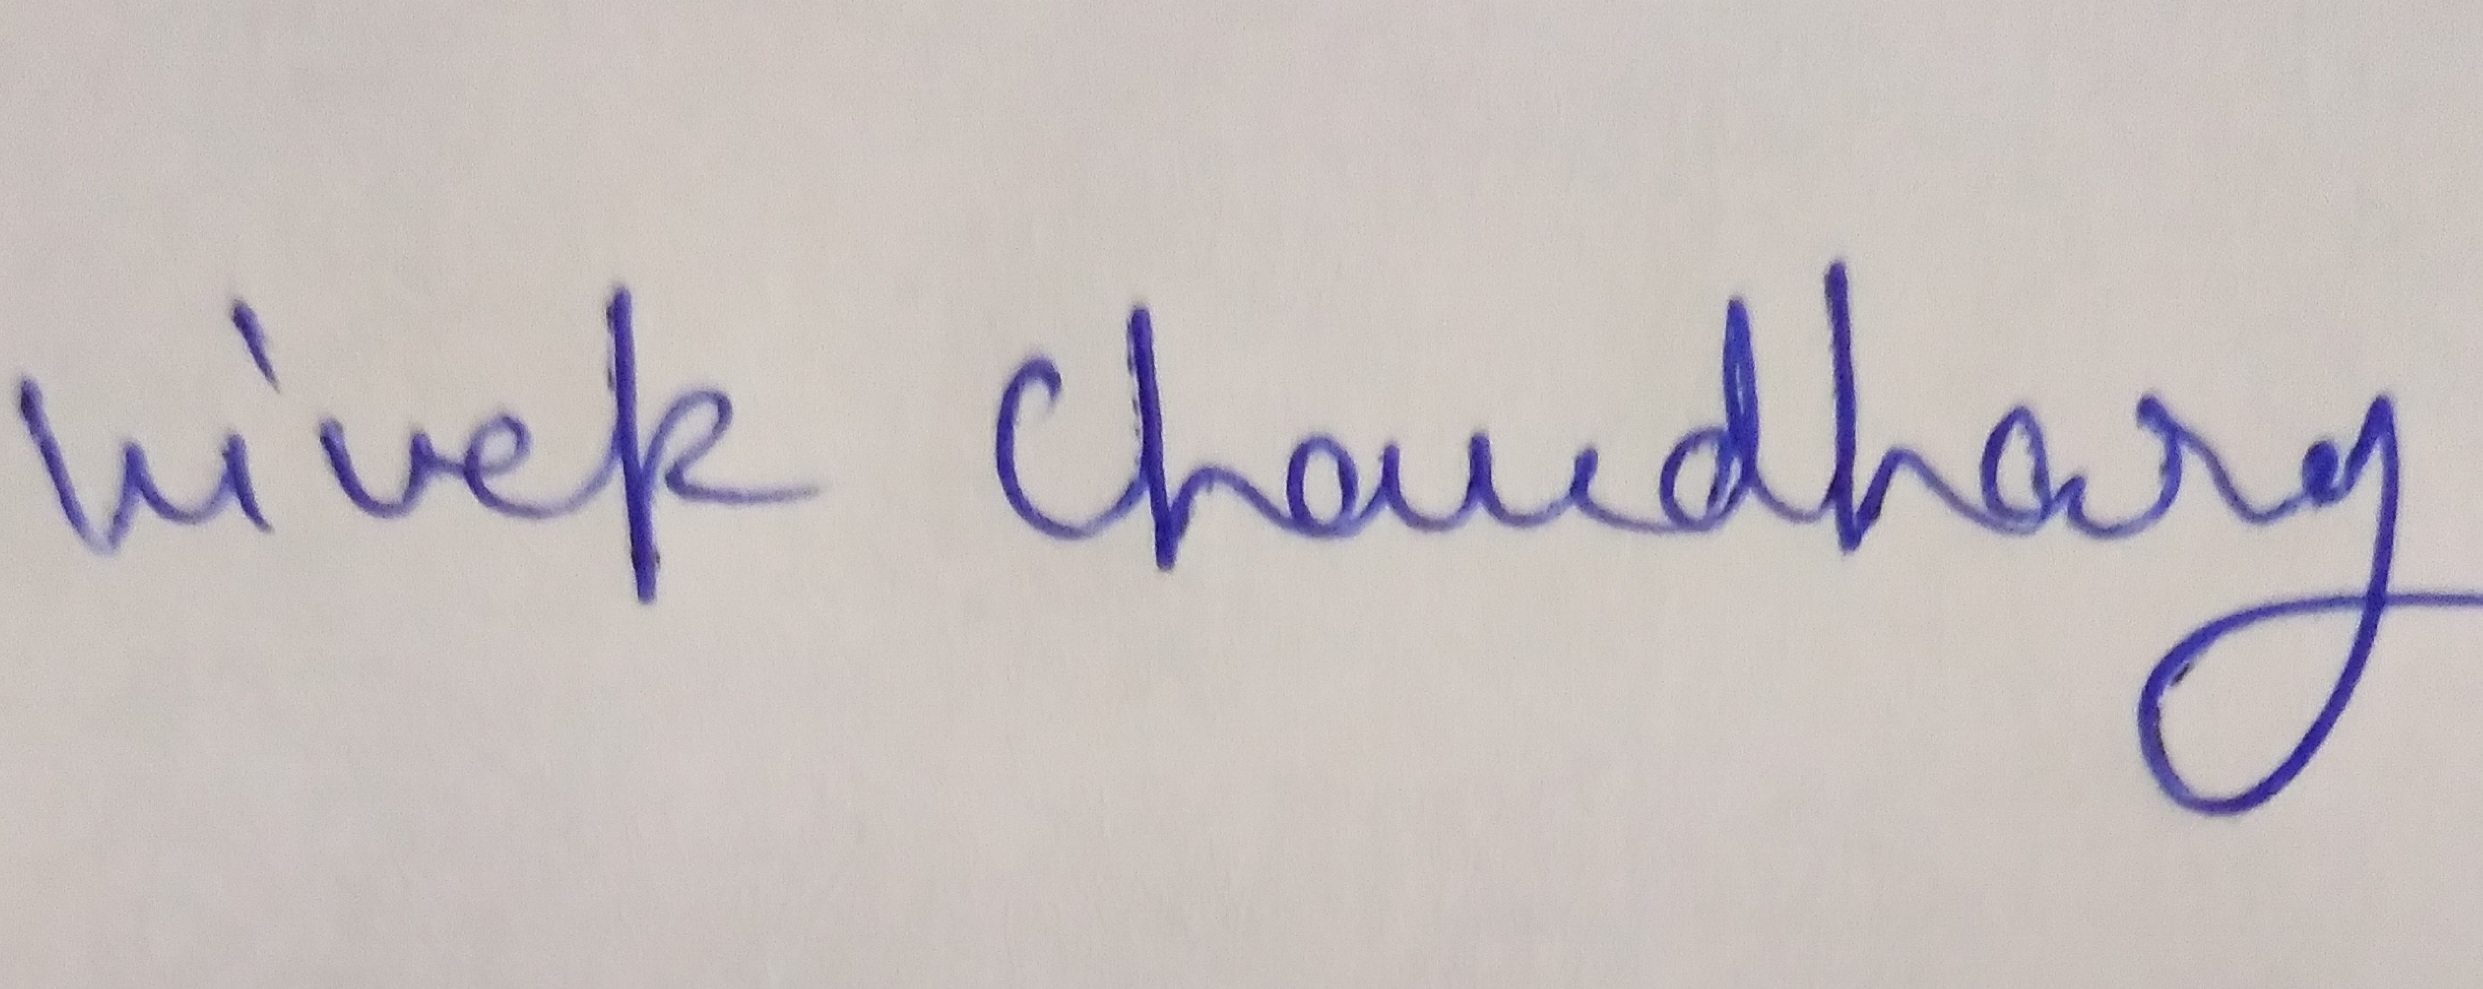 Vivek Chaudhary